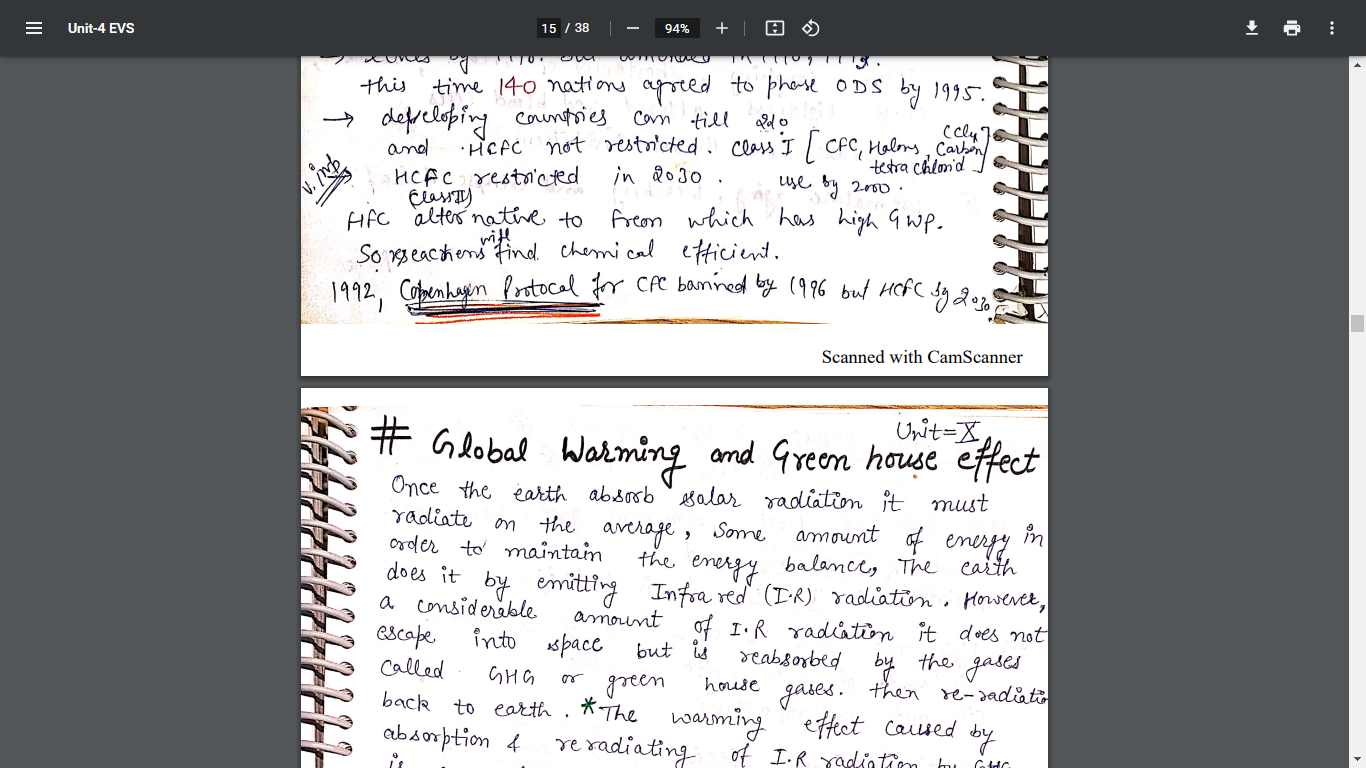 Unit-4 EVS
15 / 38
94%
this time 140 nations agreed to phase ODS by 1995.
→ developing countries can till
and HCFC not restricted. Class I [ CFC, Halons, Carbon (CCl4)
tetra chlorid ]
V. imp HCFC restricted in 2030. use by 2000.
(Class II)
HFC alternative to freon which has high GWP.
So reseachers will find chemical efficient.
1992, Copenhagen Protocal for CFC banned by 1996 but HCFC by 2030
Scanned with CamScanner
Unit=X
# Global Warming and Green house effect
Once the earth absorb solar radiation it must
radiate on the average, Some amount of energy in
order to maintain the energy balance, The earth
does it by emitting Infra red (I.R) radiation. However,
a considerable amount of I.R radiation it does not
escape into space but is reabsorbed by the gases
called GHG or green house gases. then re-radiatio
back to earth. *The warming effect caused by
absorption & reradiating of I.R radiation by GHG